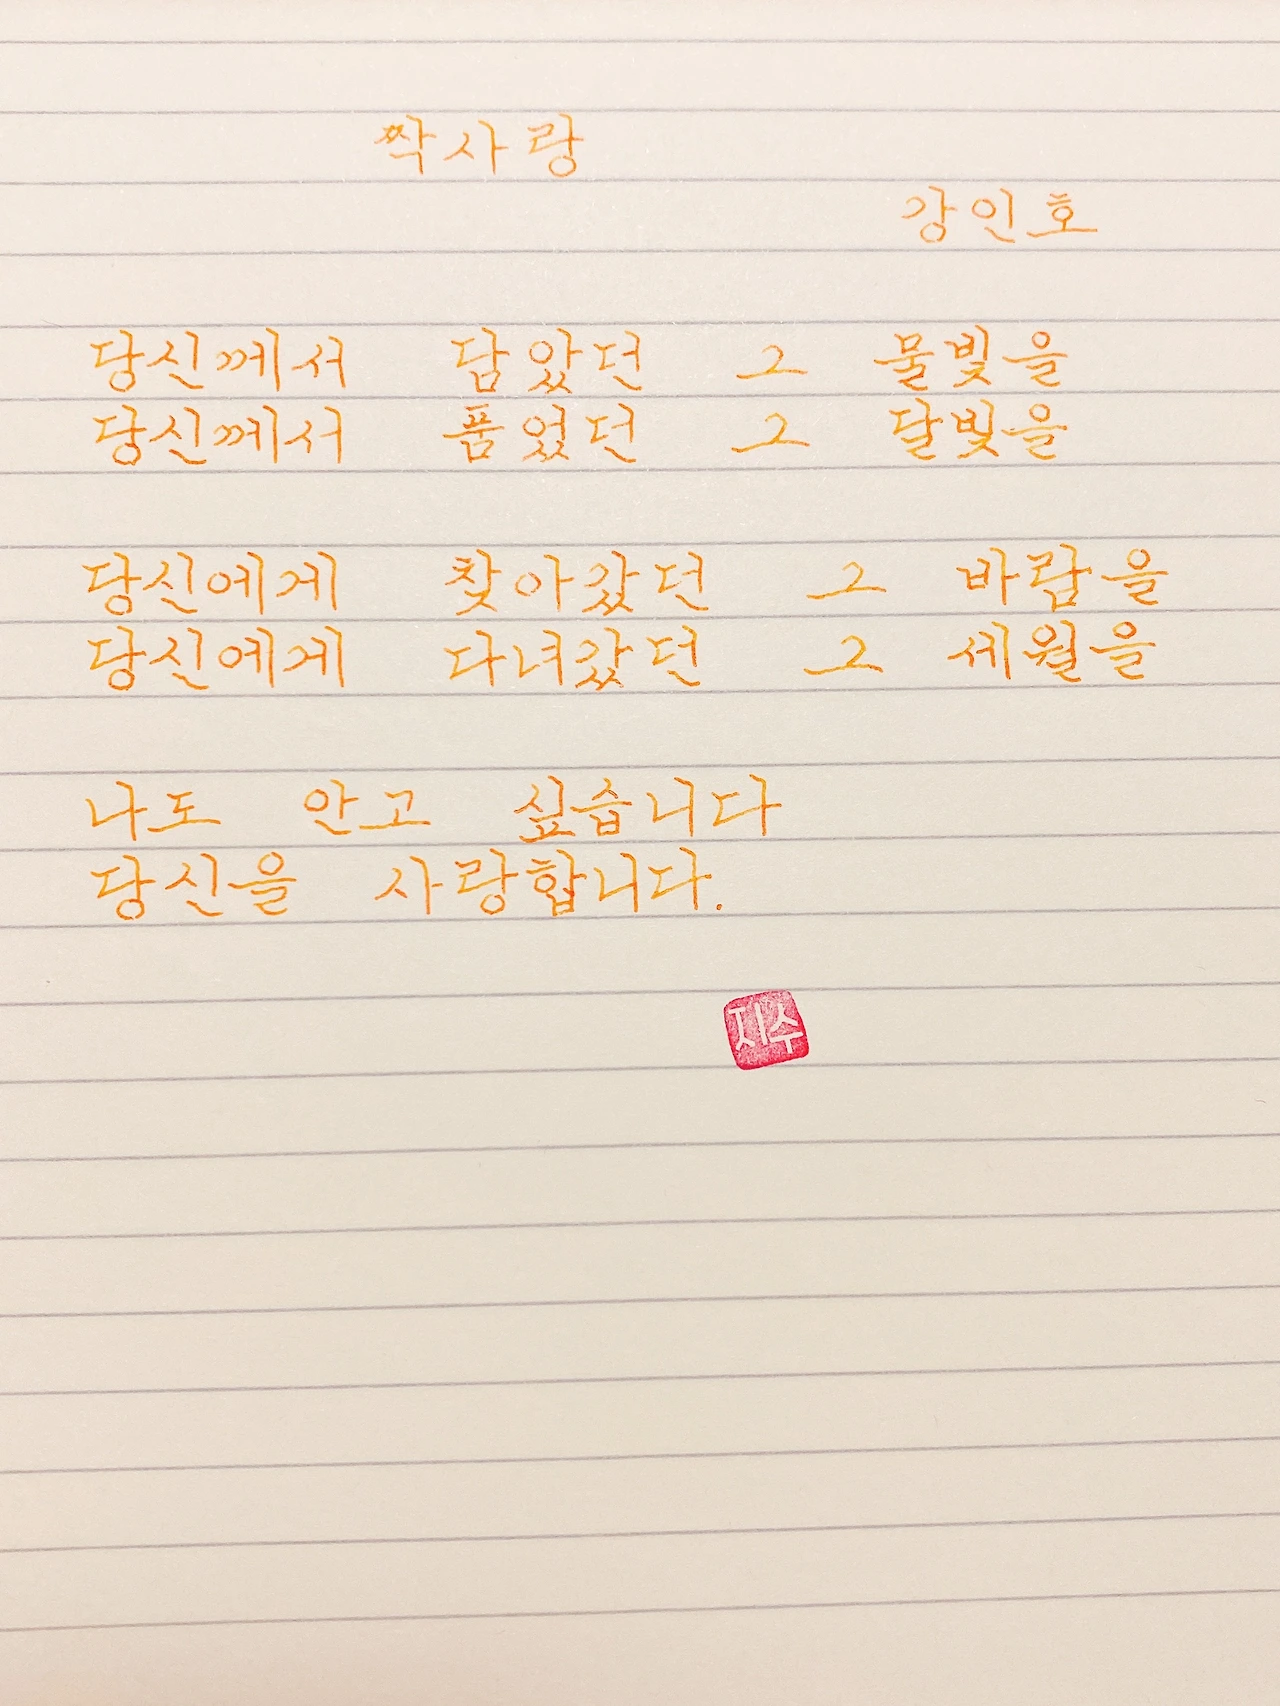 짝사랑
강인호
당신께서 담았던 그 물빛을
당신께서 품었던 그 달빛을
당신에게 찾아갔던 그 바람을
당신에게 다녀갔던 그 세월을
나도 안고 싶습니다
당신을 사랑합니다.
지수